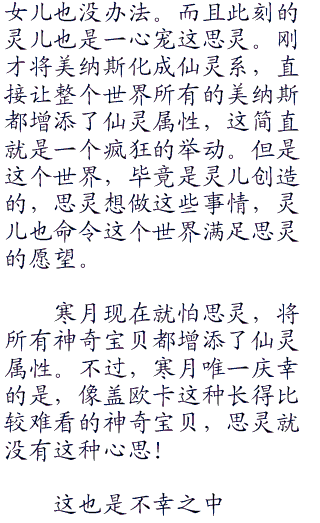 女儿也没办法。而且此刻的
灵儿也是一心宠这思灵。刚
才将美纳斯化成仙灵系，直
接让整个世界所有的美纳斯
都增添了仙灵属性，这简直
就是一个疯狂的举动。但是
这个世界，毕竟是灵儿创造
的，思灵想做这些事情，灵
儿也命令这个世界满足思灵
的愿望。
寒月现在就怕思灵，将
所有神奇宝贝都增添了仙灵
属性。不过，寒月唯一庆幸
的是，像盖欧卡这种长得比
较难看的神奇宝贝，思灵就
没有这种心思！
这也是不幸之中